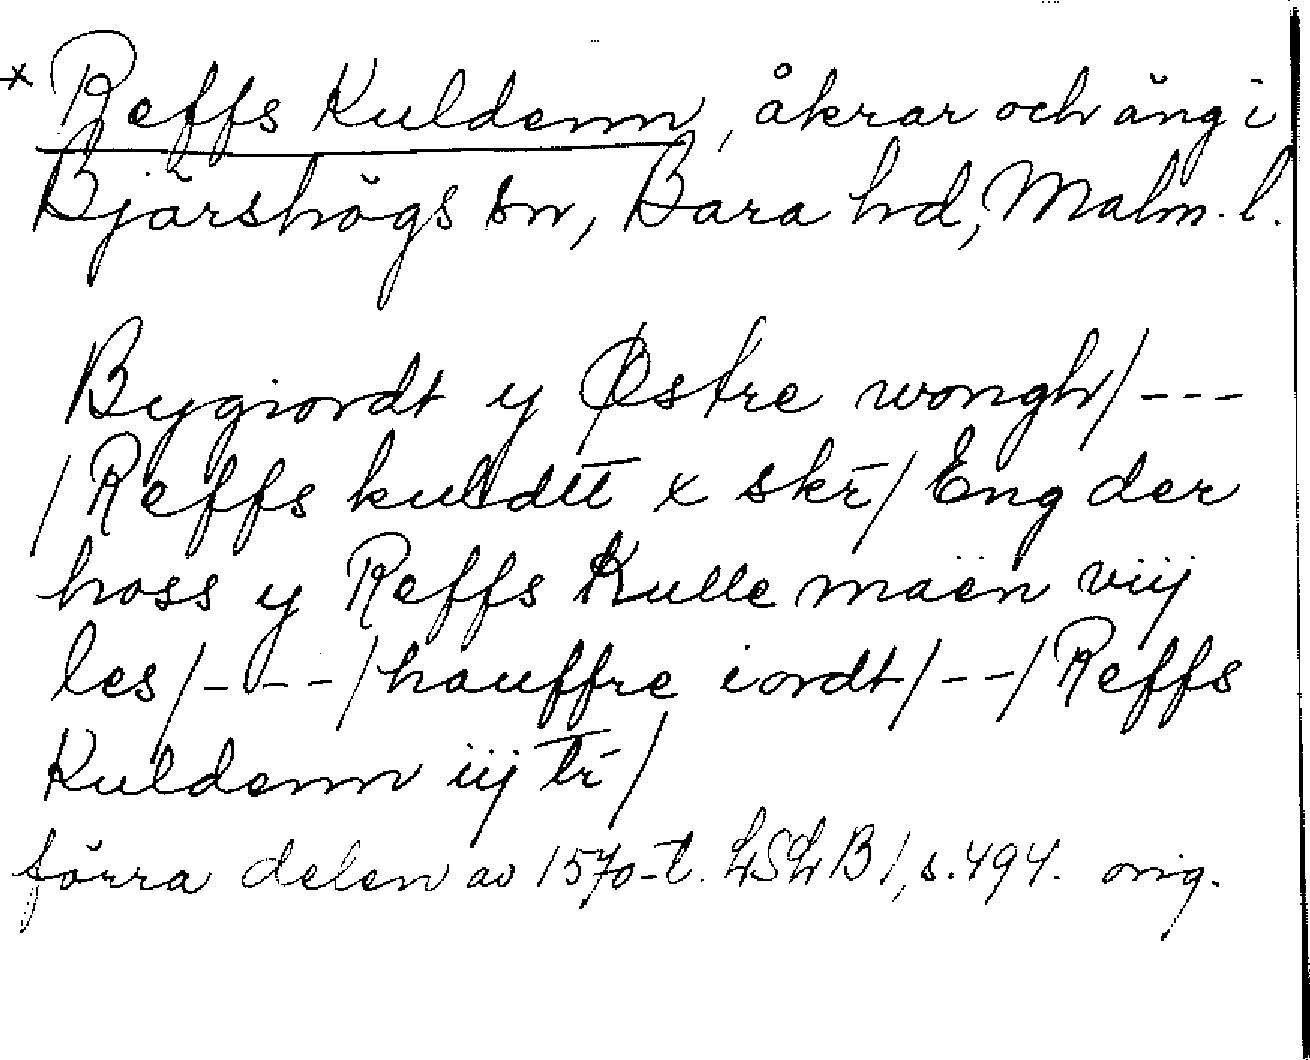 * Reffs Kuldenn, åkrar och äng i
Bjärshögs sn, Bara hd, Malm. l.
Bygiordt y Østre wongh/---
/Reffs kuldtt x skr/ Eng der
hoss y Reffs Kulle maën viij
les/---/hauffre iordt/--/Reffs
Kuldenn iij tr/
förra delen av 1570-t. LSLB1, s.494. orig.